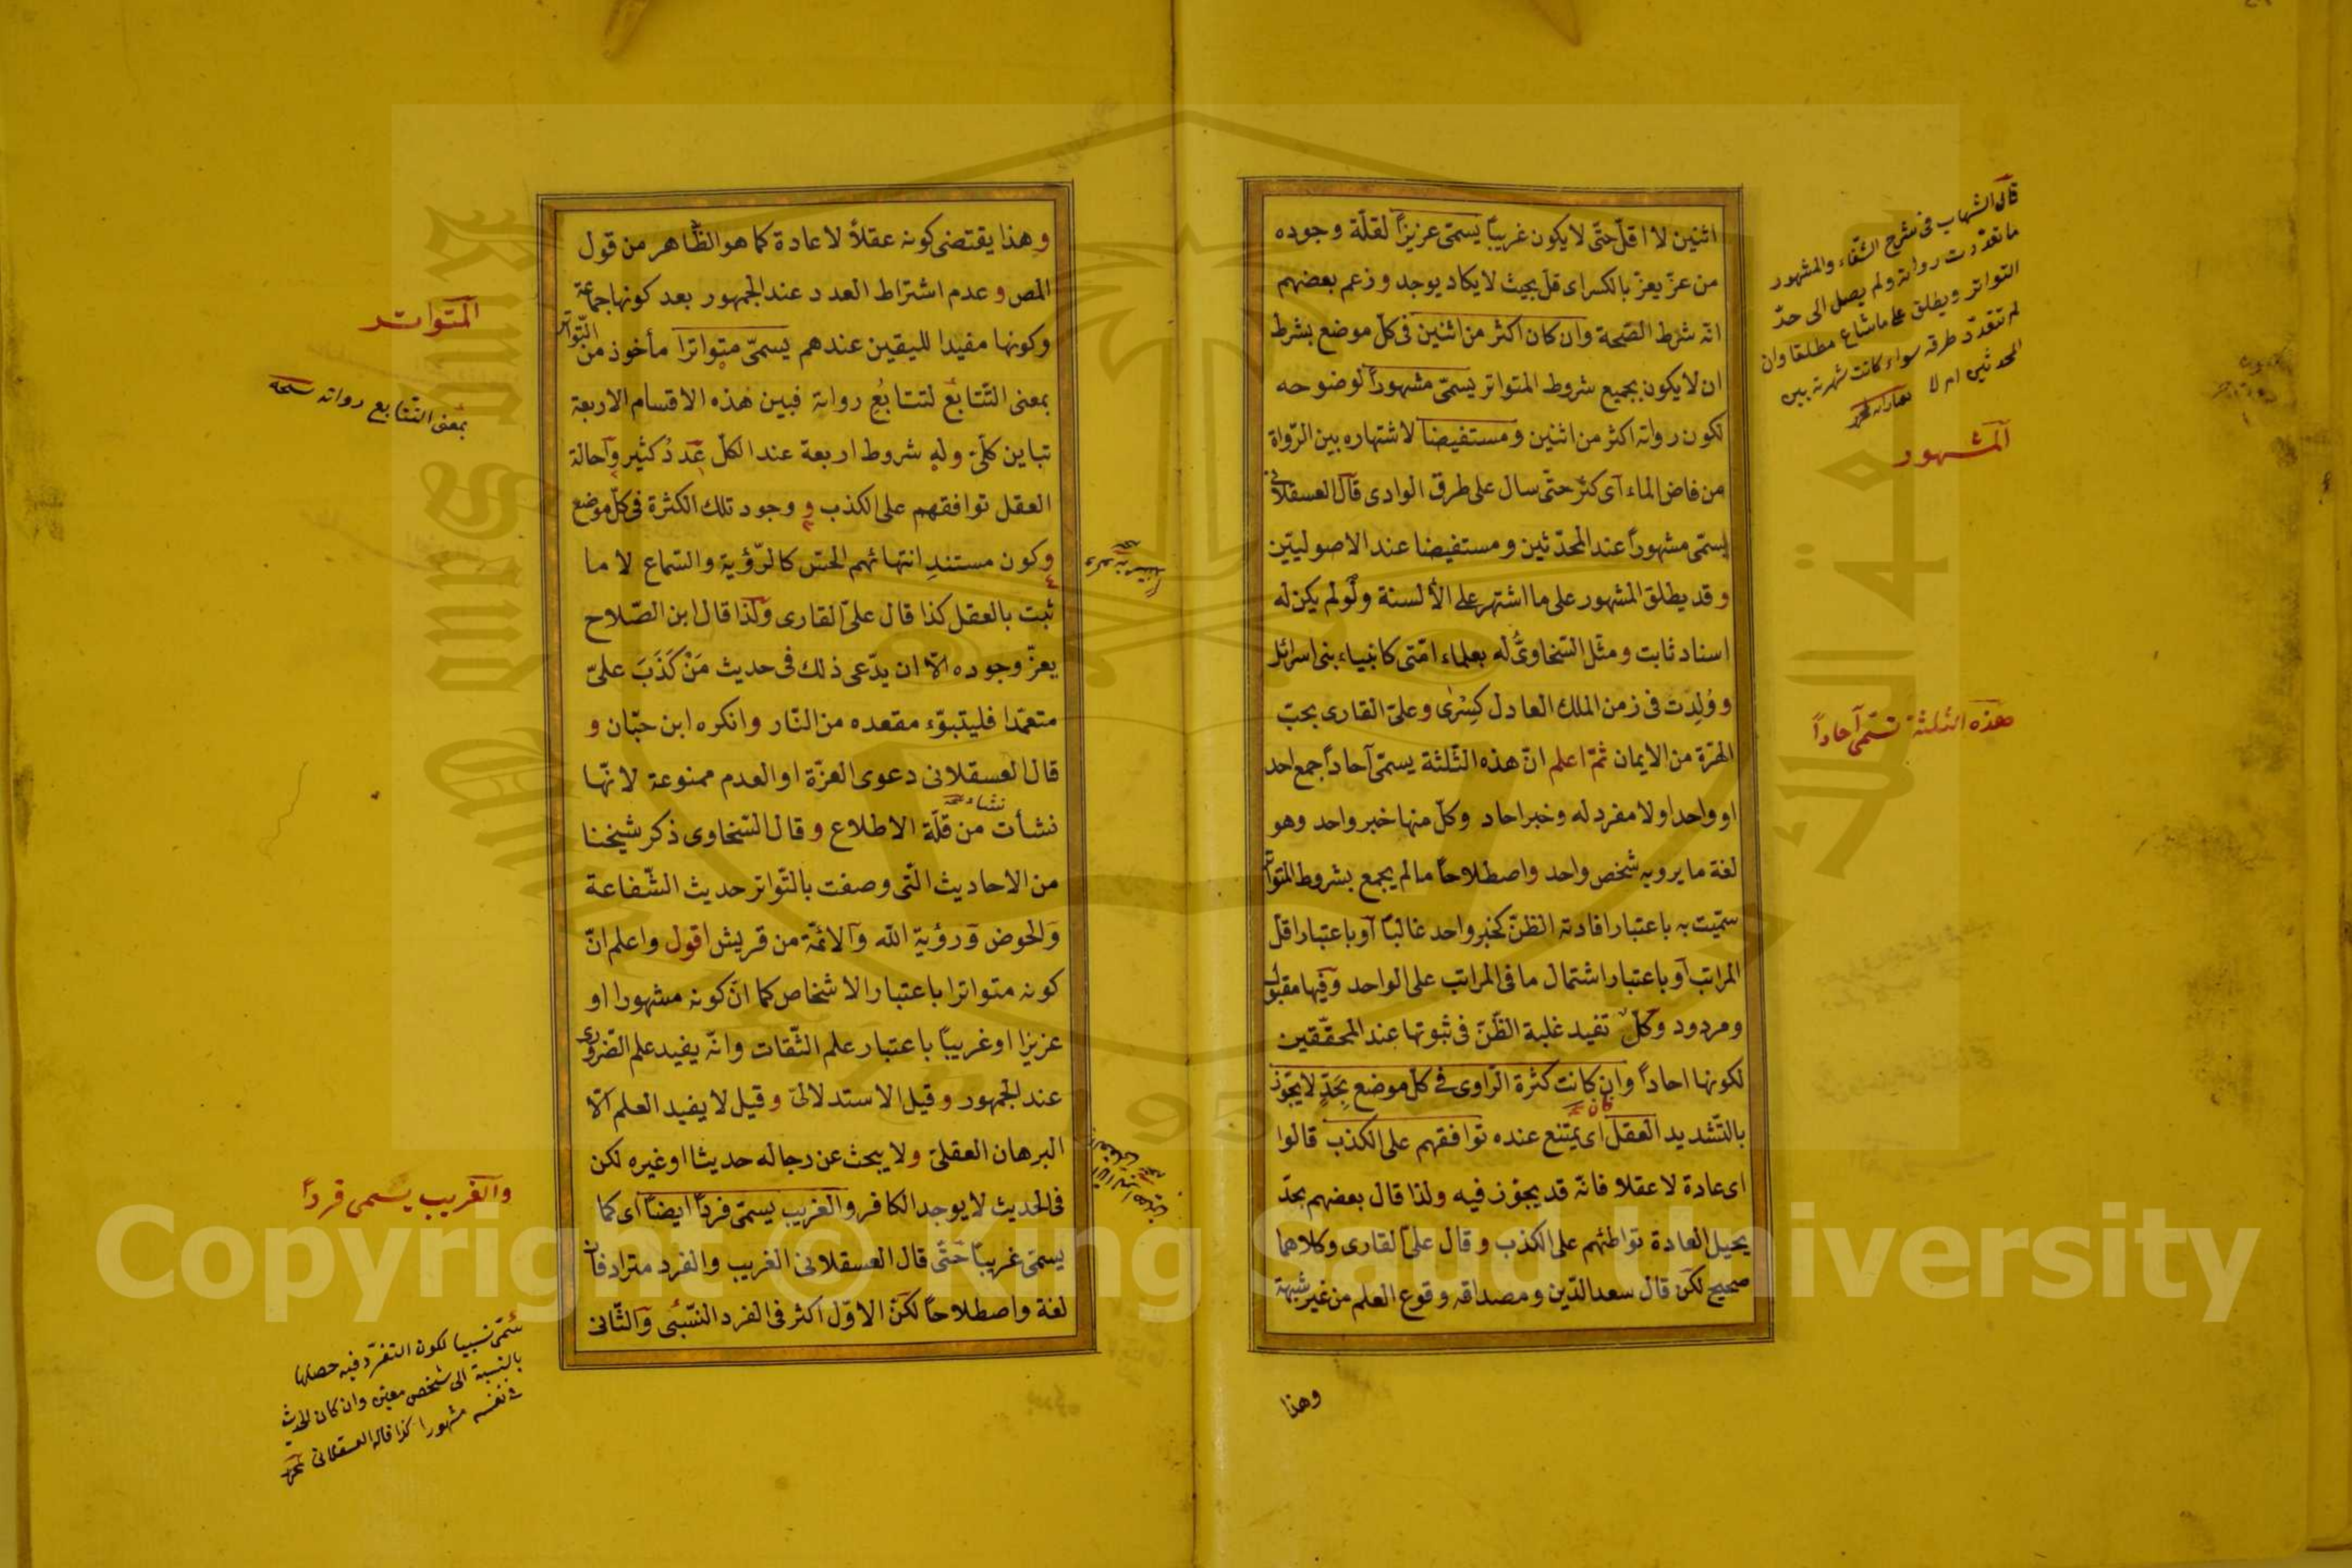 اثنين لا اقلّ حتّى لا يكون غريبًا يسمّى عزيزًا لقلّة وجوده
من عزّ يعزّ بالكسر اى قلّ بحيث لا يكاد يوجد وزعم بعضهم
انّه شرط الصّحة وان كان اكثر من اثنين فى كلّ موضع بشرط
ان لا يكون بجميع شروط المتواتر يسمّى مشهوراً لوضوحه
لكون رواته اكثر من اثنين ومستفيضا لاشتهاره بين الرّواة
من فاض الماء آى كثر حتّى سال على طرق الوادى قال العسقلانى
يسمّى مشهوراً عند المحدّثين ومستفيضا عند الاصوليّين
وقد يطلق المشهور على ما اشتهر على الألسنة ولو لم يكن له
اسناد ثابت ومثّل السّخاوىّ له بعلماء امّتى كانبياء بنى اسرائل
و وُلِدَت فى زمن الملك العادل كِسْرٰى وعلىّ القارى بحبّ
الهرّة من الايمان ثمّ اعلم انّ هذه الثّلثة يسمّى آحاداً جمع احد
او واحد اولا مفرد له وخبر احاد وكلّ منها خبر واحد وهو
لغة ما يرويه شخص واحد واصطلاحاً ما لم يجمع بشروط المتواتر
سمّيت به باعتبار افادته الظنّ كخبر واحد غالبًا آو باعتبار اقلّ
المراتب آو باعتبار اشتمال ما فى المراتب على الواحد وفيها مقبول
ومردود وكلّ تفيد غلبة الظّنّ فى ثبوتها عند المحقّقين
لكونها احاداً وان كانت كثرة الرّاوى فى كلّ موضع بحَدٍّ لا يجوّز
بالتّشديد العقل اى يمتنع عنده توافقهم على الكذب قالوا
اى عادة لا عقلا فانّه قد يجوّز فيه ولذا قال بعضهم بحدّ
يحيل العادة تواطئهم على الكذب وقال علىّ القارى وكلاهما
صحيح لكن قال سعد الدّين ومصداقه وقوع العلم من غير شبهة
وهذا
قال الشهاب فى شرح الشفاء والمشهور
ما تعدّدت رواته ولم يصل الى حدّ
التواتر ويطلق على ما شاع مطلقا وان
لم تتعدّد طرقه سواء كانت شهرته بين
المحدثين ام لا
المشهور
هذه الثلثة تسمّى آحاداً
وهذا يقتضى كونه عقلاً لا عادة كما هو الظّاهر من قول
المص وعدم اشتراط العدد عند الجمهور بعد كونها جماعة
وكونها مفيدا لليقين عندهم يسمّى متواترا مأخوذ من التّواتر
بمعنى التّتابُع لتتابُع رواته فبين هذه الاقسام الاربعة
تباين كلّىّ وله شروط اربعة عند الكلّ عَدَدُ كثير وآحالة
العقل توافقهم على الكذب و وجود تلك الكثرة فى كلّ موضع
وكون مستندِ انتهائهم الحسّ كالرّؤية والسّماع لا ما
ثبت بالعقل كذا قال علىّ القارى ولذا قال ابن الصّلاح
يعزّ وجوده الّا ان يدّعى ذلك فى حديث مَنْ كَذَبَ علىّ
متعمّدا فليتبوّء مقعده من النّار وانكره ابن حبّان و
قال العسقلانى دعوى العزّة او العدم ممنوعة لانّها
نشأت من قلّة الاطلاع وقال السّخاوى ذكر شيخنا
من الاحاديث الّتى وصفت بالتّواتر حديث الشّفاعة
وَالحوض وَرؤية الله وَآلائمّة من قريش اقول واعلم انّ
كونه متواترا باعتبار الاشخاص كما انّ كونه مشهورا او
عزيزا او غريبًا باعتبار علم الثّقات وانّه يفيد علم الضّرورى
عند الجمهور وقيل الاستدلالىّ وقيل لا يفيد العلم الّا
البرهان العقلىّ ولا يبحث عن رجاله حديثا او غيره لكن
فى الحديث لا يوجد الكافر والغريب يسمّى فرداً ايضًا اى كما
يسمّى غريبًا حَتّى قال العسقلانى الغريب والفرد مترادفان
لغة واصطلاحاً لكنّ الاوّل اكثر فى الفرد النّسبُى وَآلثّانى
المتواتر
بمعنى التّتابع رواته
والغريب يسمى فرداً
سُمّى نسبيا لكون التفرّد فيه حصلها
بالنسبة الى شخص معيّن وان كان الحديث
فى نفسه مشهورا كذا قاله العسقلانى
Copyright © King Saud University